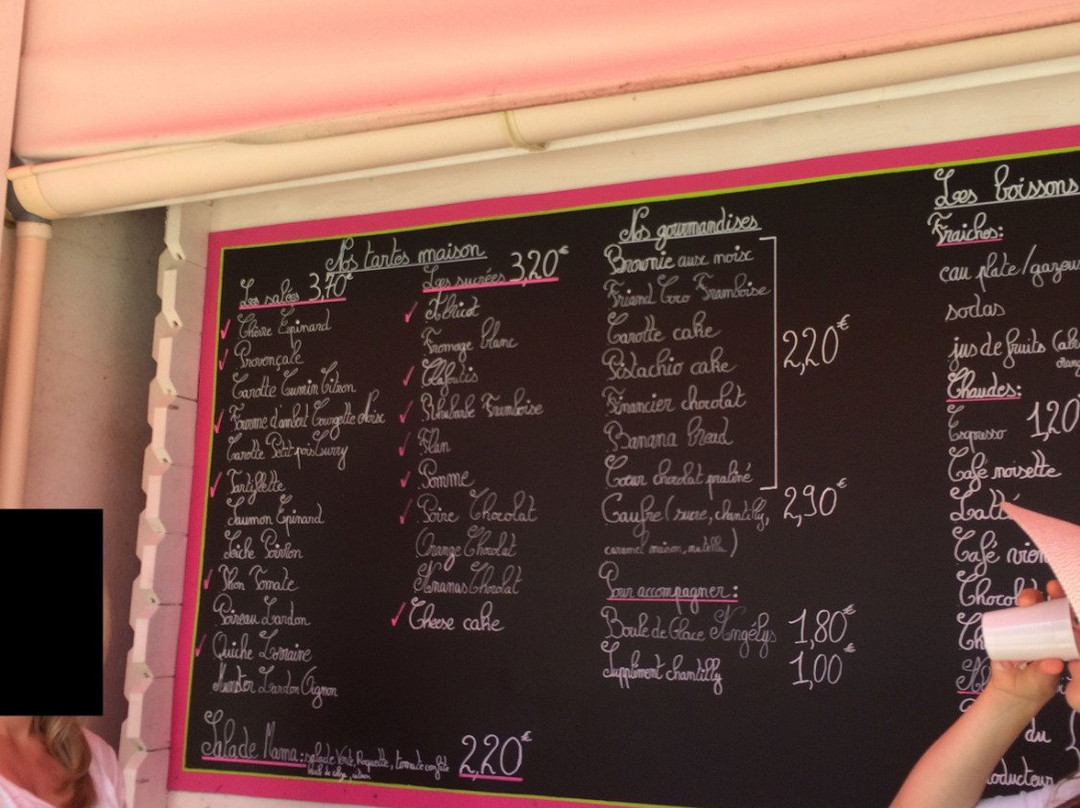 Nos tartes maison
Les salées 3,70€
Chèvre Epinard
Provençale
Carotte Cumin Citron
Fourme d'ambert Courgette Noix
Carotte Petit pois Curry
Tartiflette
Saumon Epinard
Seiche Poivron
Thon Tomate
Poireau Lardon
Quiche Lorraine
Munster Lardon Oignon
Les sucrées 3,20€
Abricot
Fromage blanc
Clafoutis
Rhubarbe Framboise
Flan
Pomme
Poire Chocolat
Orange Chocolat
Ananas Chocolat
Cheese cake
Salade Mama: salade Verte, Roquette, tomate confite 2,20€
Nos gourmandises
Brownie aux noix
Friand Coco Framboise
Carotte cake
Pistachio cake
Financier chocolat
Banana bread
Coeur chocolat praliné
2,20€
Gaufre (sucre, chantilly, 2,90€
caramel maison, nutella)
Pour accompagner:
Boule de Glace Angélys 1,80€
Supplément chantilly 1,00€
Les boissons
Fraiches:
eau plate/gazeus
sodas
jus de fruits
Chaudes:
Espresso 1,20
Café noisette
Latté
Café vien
Chocol
Ch
du
oducteur